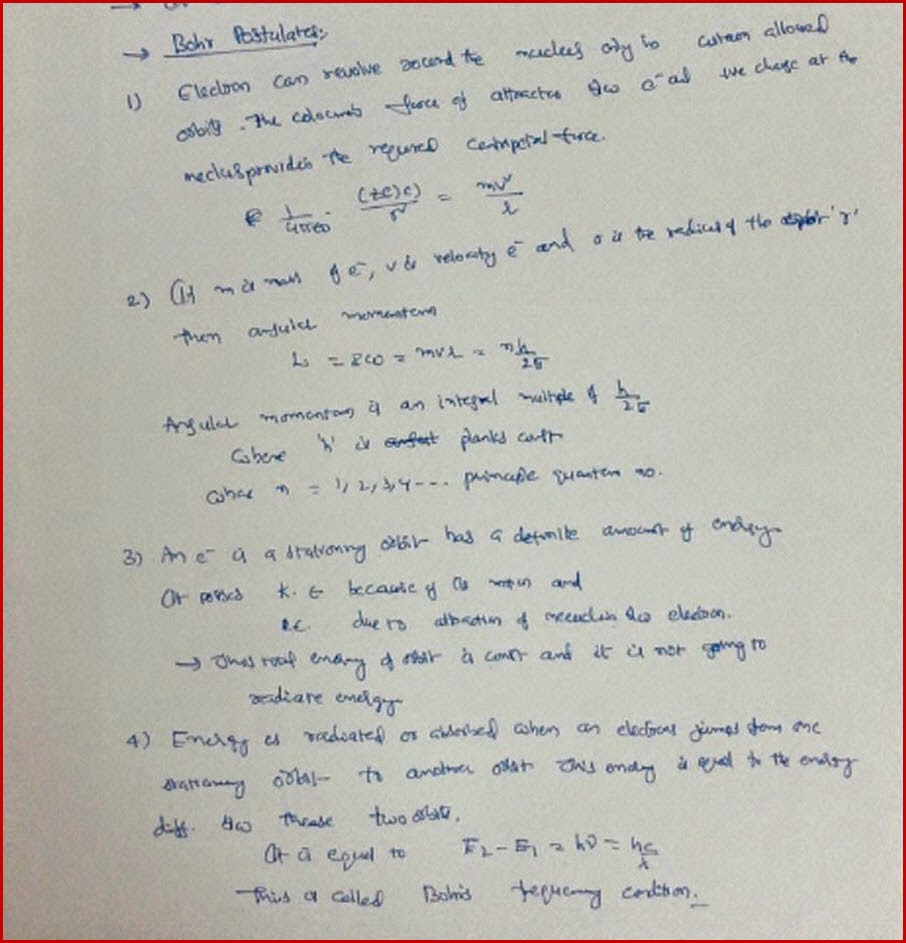 → Bohr Postulates:
1) Electron can revolve around the nucleus only in certain allowed
orbits. The coloumb force of attraction b/w e⁻ and +ve charge at the
necleus provides the required centripetal force.
1/4πε0 · (ze)(e)/r² = mv²/r
2) If m is mass of e⁻, v is velocity e⁻ and r is the radius of the orbit 'r'
then angular momentum
L = Iω = mvr = nh/2π
Angular momentum is an integral multiple of h/2π
where 'h' is planks const
where n = 1, 2, 3, 4 --- principle quantum no.
3) An e⁻ in a stationary orbit has a definite amount of energy
It posses K.E because of its motion and
P.E. due to attraction of neculus b/w electron.
→ Thus total energy of orbit is const and it is not going to
radiate energy
4) Energy is radiated or absorbed when an electron jumps from one
stationary orbit to another orbit This energy is equal to the energy
diff. b/w these two orbits.
It is equal to E2 - E1 = hν = hc/λ
This is called Bohr's frequency condition.